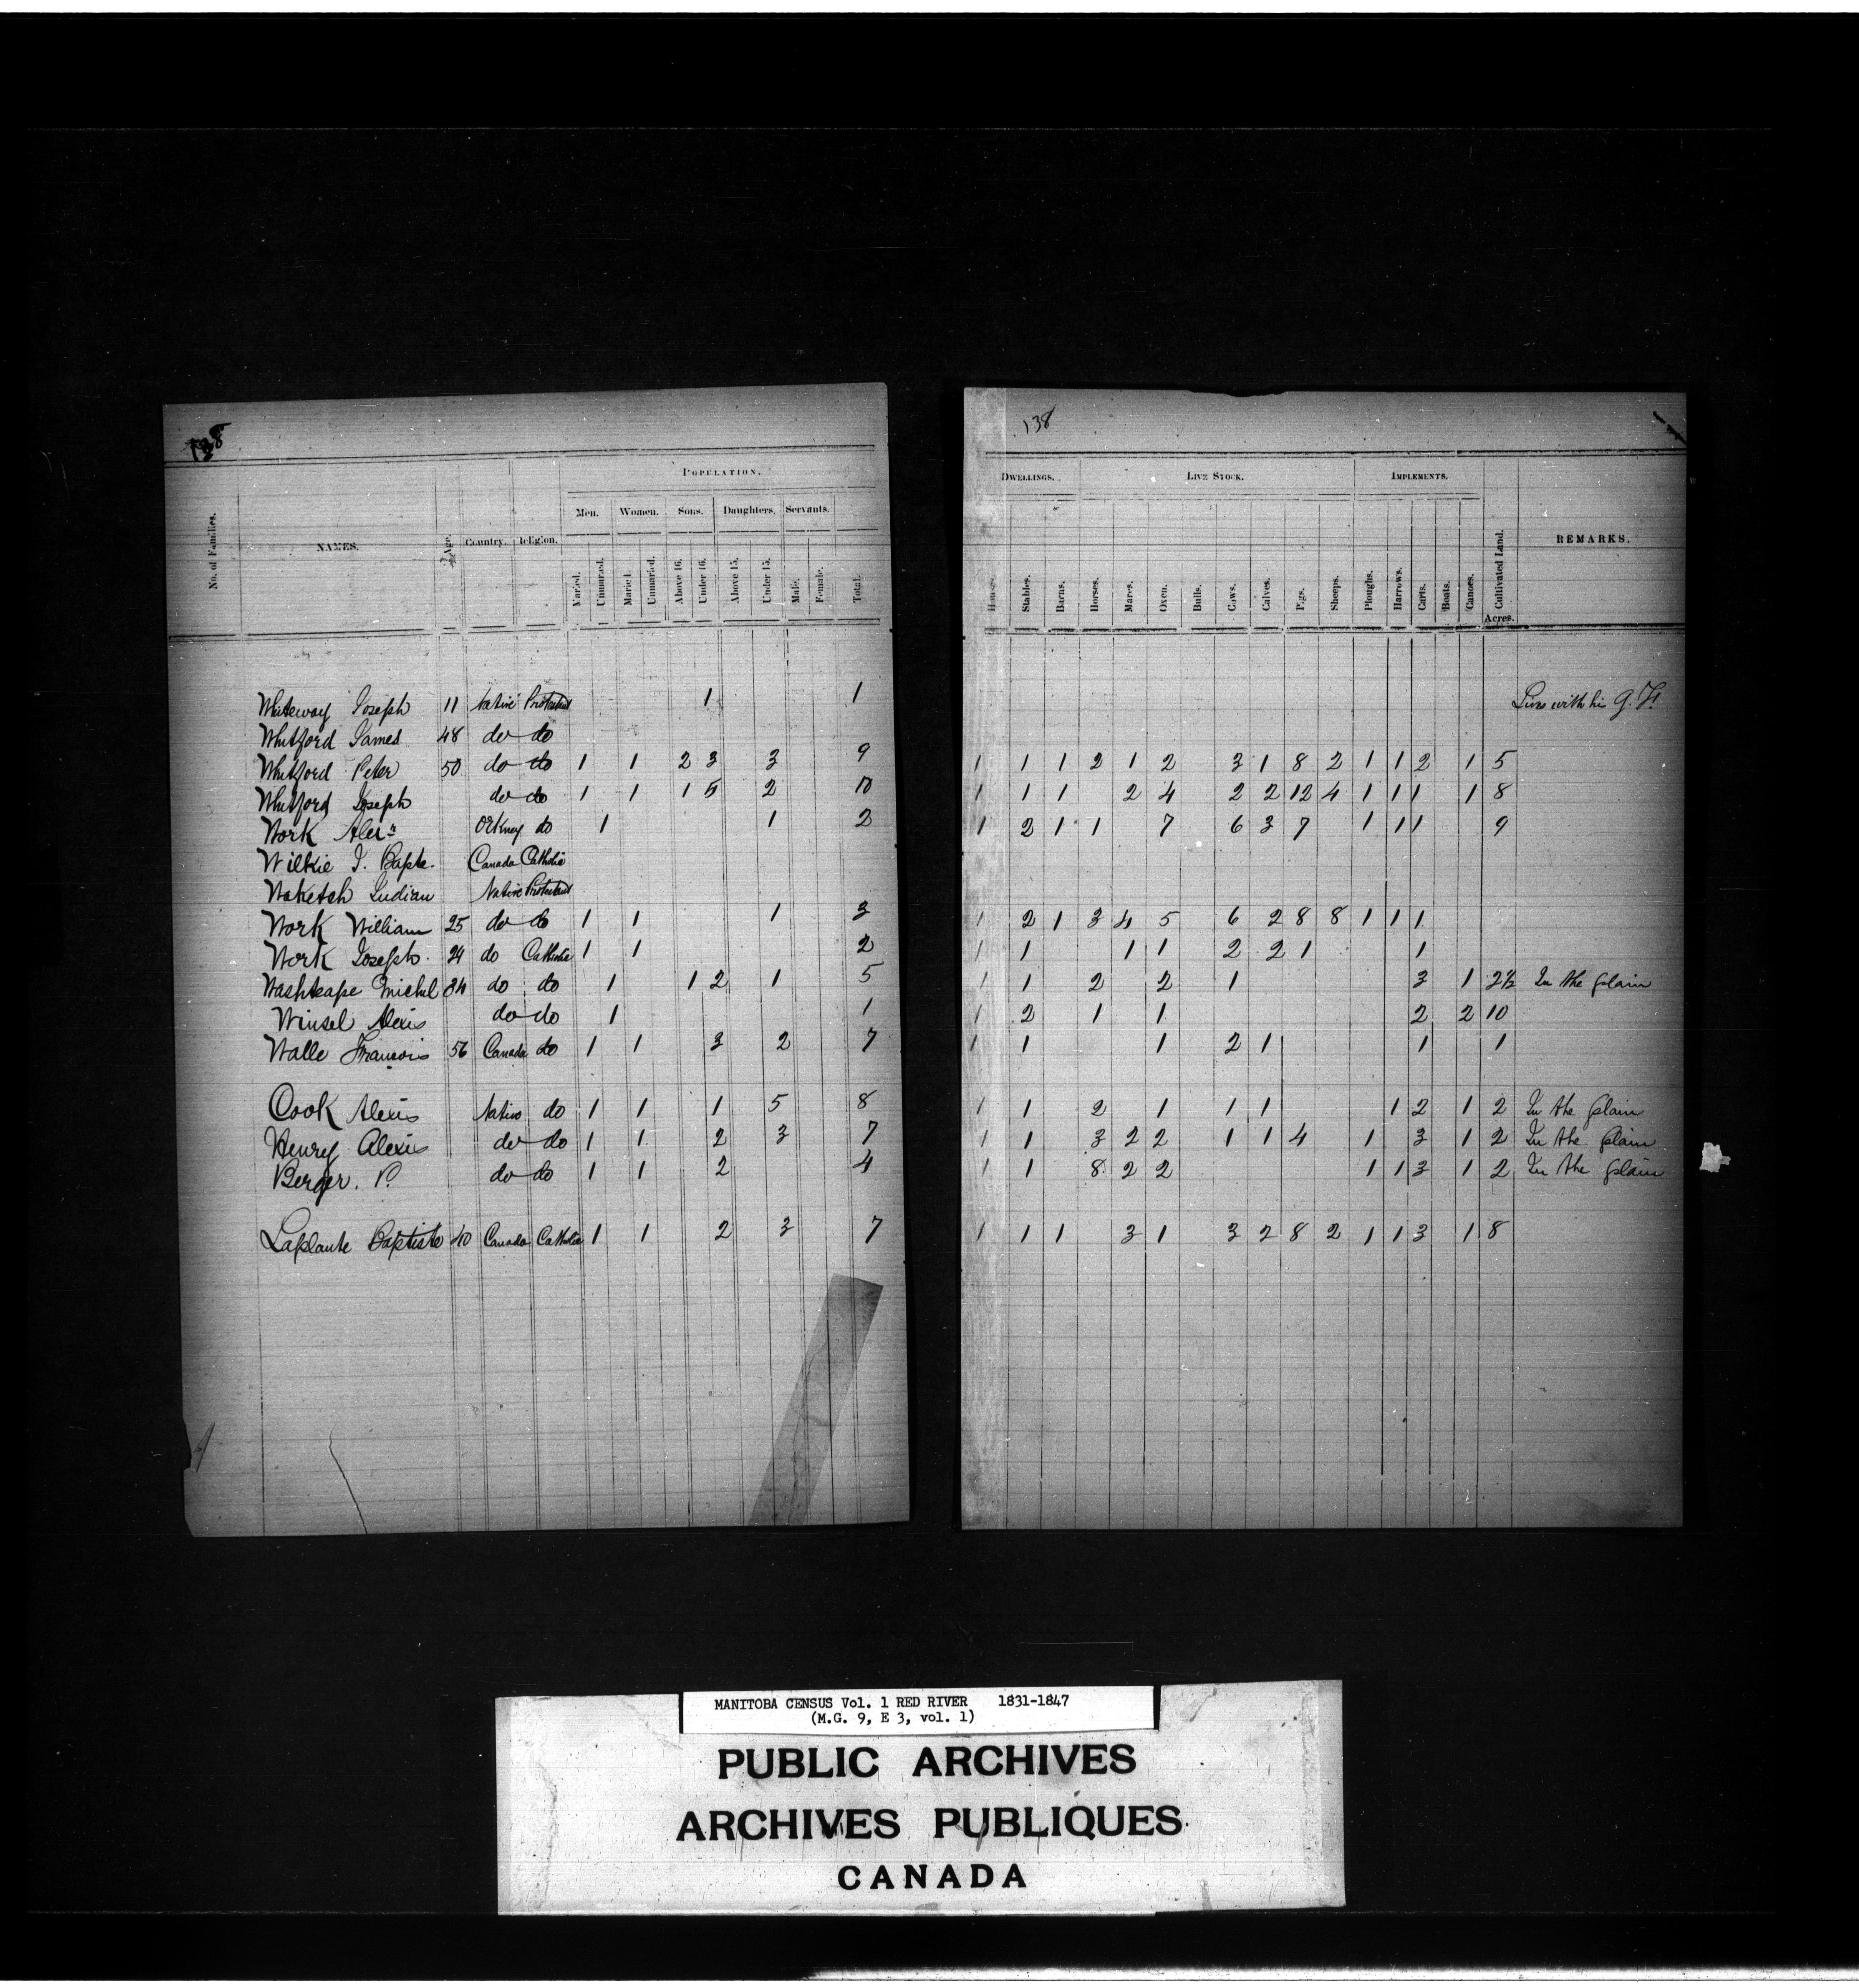 138
POPULATION.
Men. Women. Sons. Daughters. Servants.
No. of Families. NAMES. Age. Country. Religion. Married. Unmarried. Married. Unmarried. Above 16. Under 16. Above 15. Under 15. Male. Female. Total.
Whiteway Joseph 11 Native Protestant 1 1
Whitford James 48 do do
Whitford Peter 50 do do 1 1 2 3 3 9
Whitford Joseph do do 1 1 1 5 2 10
Work Alexr Orkney do 1 1 2
Wilkie J. Bapte. Canada Catholic
Waketch Indian Native Protestant
Work William 25 do do 1 1 1 3
Work Joseph 24 do Catholic 1 1 2
Washteape Michel 34 do do 1 1 2 1 5
Winsel Alexis do do 1 1
Walle Francois 56 Canada do 1 1 3 2 7
Cook Alexis Native do 1 1 1 5 8
Henry Alexis do do 1 1 2 3 7
Berger. P. do do 1 1 2 4
Laplante Baptiste 40 Canada Catholic 1 1 2 3 7
138
DWELLINGS. LIVE STOCK. IMPLEMENTS.
Houses. Stables. Barns. Horses. Mares. Oxen. Bulls. Cows. Calves. Pigs. Sheeps. Ploughs. Harrows. Carts. Boats. Canoes. Cultivated Land. REMARKS.
Acres.
Lives with his G. F.
1 1 1 2 1 2 3 1 8 2 1 1 2 1 5
1 1 1 2 4 2 2 12 4 1 1 1 1 8
1 2 1 1 7 6 3 7 1 1 1 9
1 2 1 3 4 5 6 2 8 8 1 1 1
1 1 1 1 2 2 1 1
1 1 2 2 1 3 1 2½ In the plain
1 2 1 1 2 2 10
1 1 1 2 1 1 1
1 1 2 1 1 1 1 2 1 2 In the plain
1 1 3 2 2 1 1 4 1 3 1 2 In the plain
1 1 8 2 2 1 1 3 1 2 In the plain
1 1 1 3 1 3 2 8 2 1 1 3 1 8
MANITOBA CENSUS Vol. 1 RED RIVER 1831-1847
(M.G. 9, E 3, vol. 1)
PUBLIC ARCHIVES
ARCHIVES PUBLIQUES
CANADA